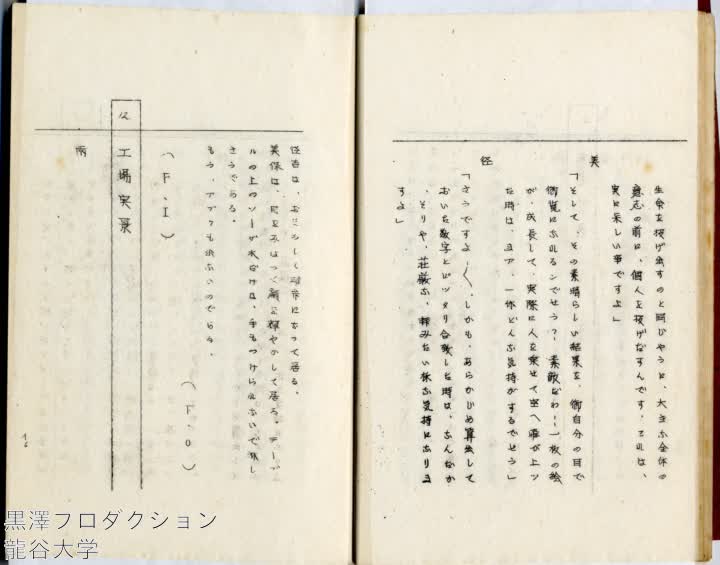 生命を投げ出すのと同じやうに、大きな全体の
意志の前に、個人を投げだすんです。これは、
実に楽しい事ですよ」
美
「そして、その素晴らしい結果を、御自分の目で
御覧になれるンでせう？ 素敵だわ！一枚の絵
が、成長して、実際に人を乗せて空へ舞が上ッ
た時は、ヨア、一体どんな気持がするでせう」
径
「さうですよ〱、しかも、あらかじめ算出して
おいた数字とピッタリ合致した時は、なんだか
、とりや、荘厳な、拝みたい様な気持になりま
すよ」
径吉は、おそろしく雄弁になつて居る。
美保は、目をみはつて顔を輝やかして居る。テーブ
ルの上のソーダ水だけは、手もつけられないで淋し
さうである。
もう、アブクも浮ばないのである。
(F、O)
(F、I)
12 工場実景
雨
16
黒澤プロダクション
龍谷大学